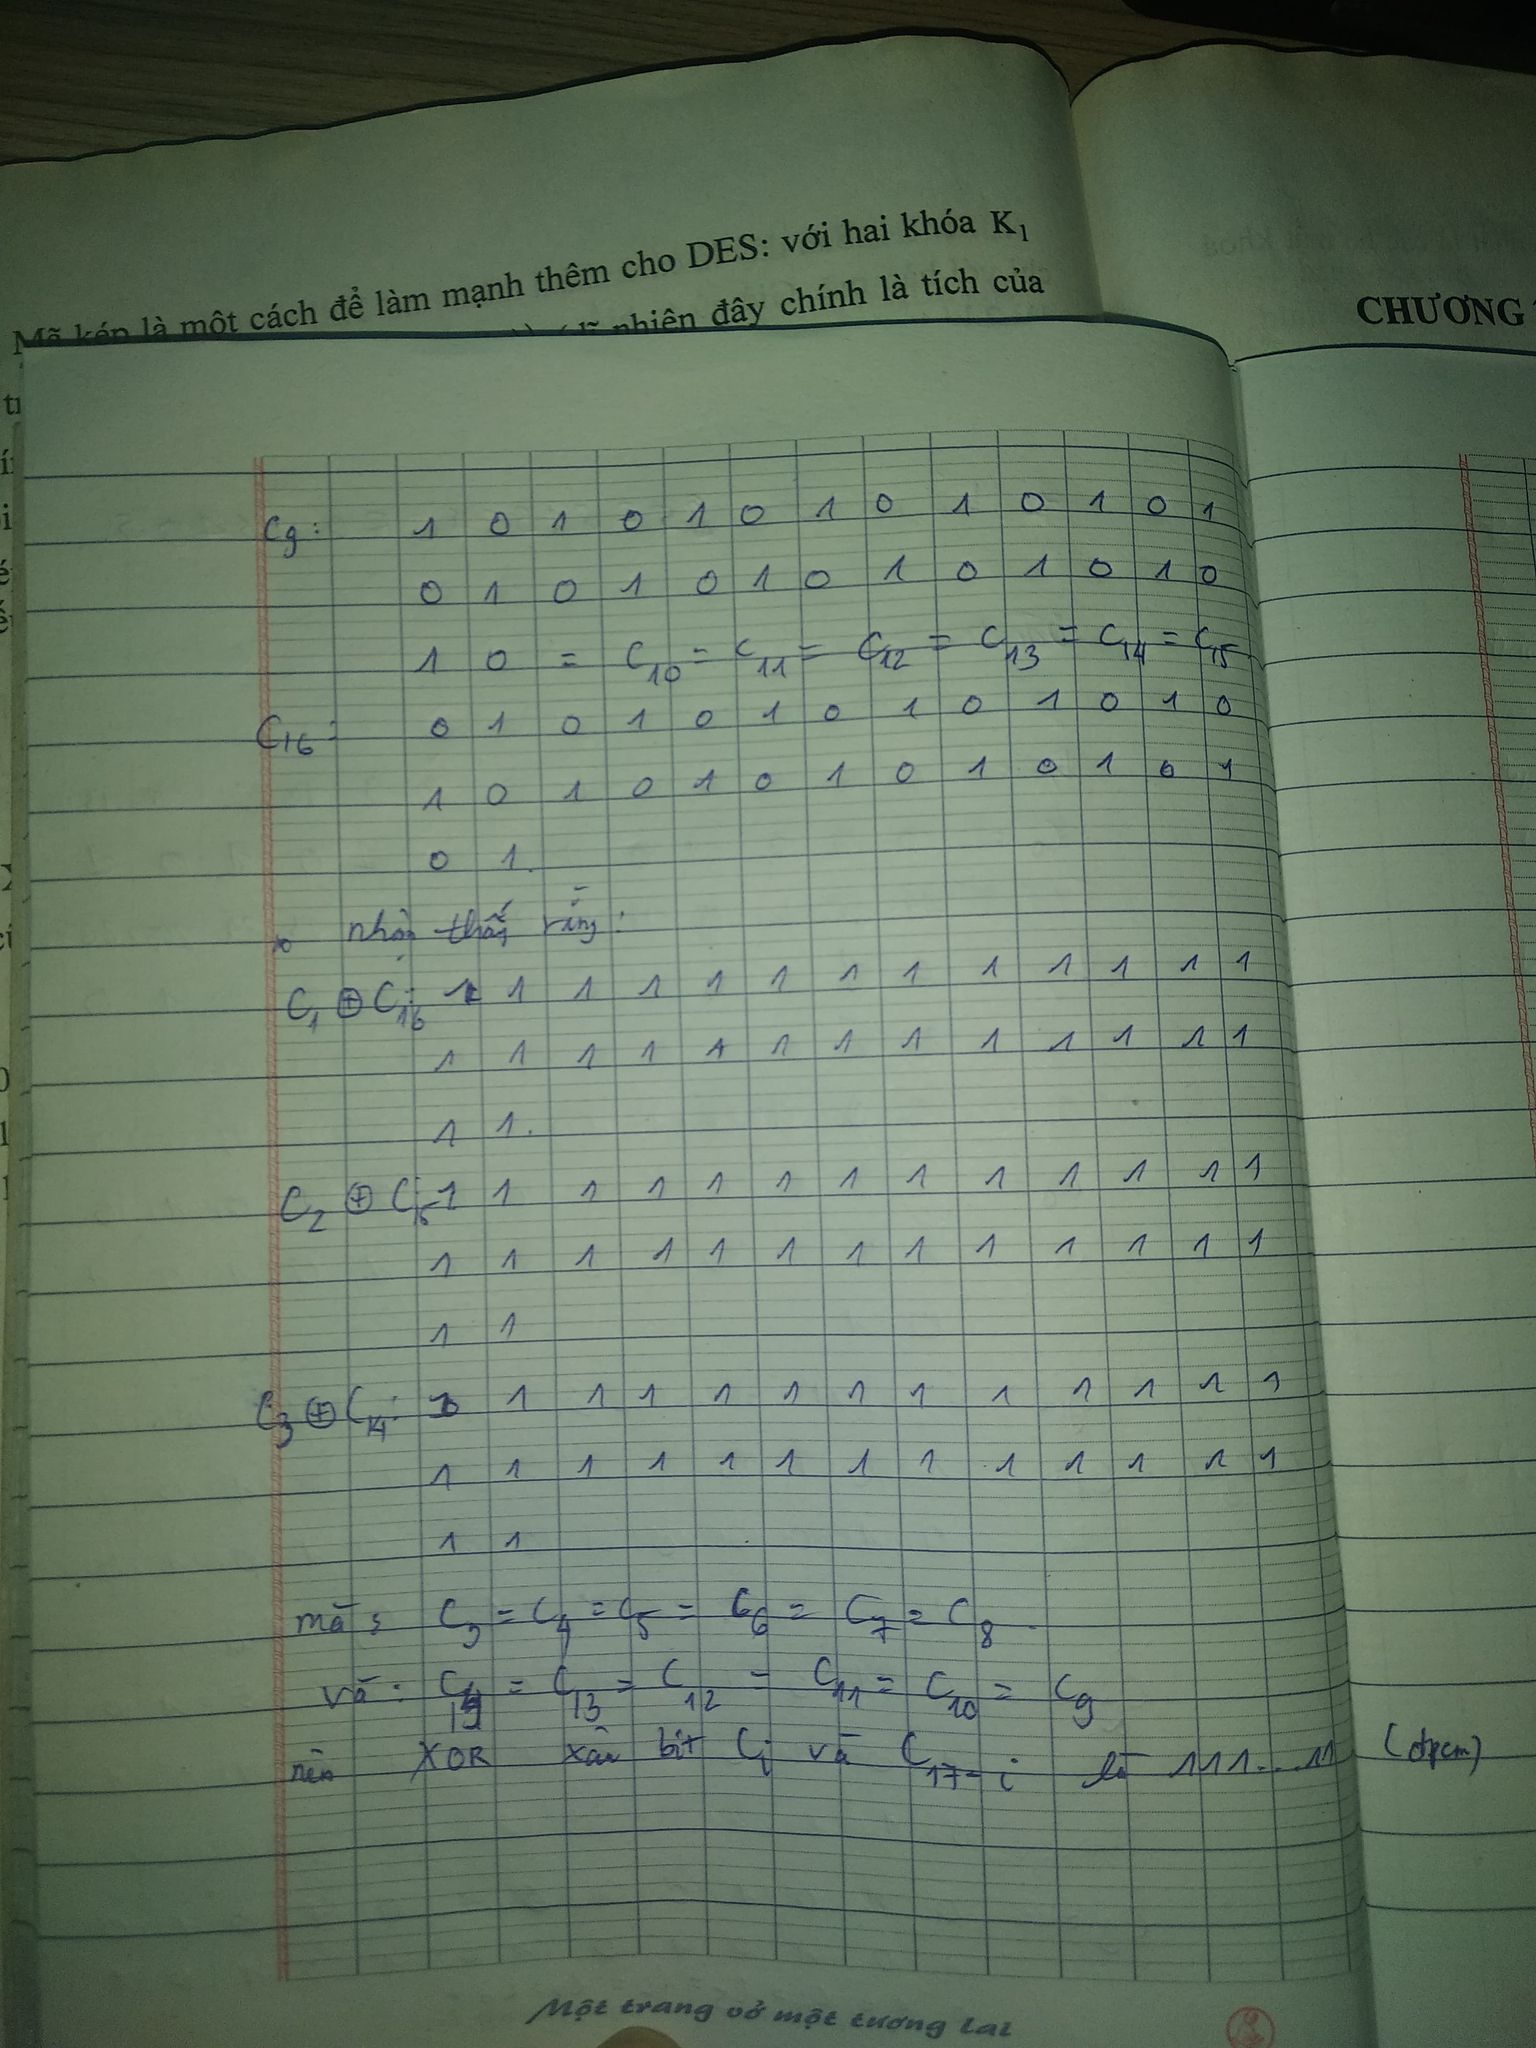 Mã kép là một cách để làm mạnh thêm cho DES: với hai khóa K1
nhiên đây chính là tích của
CHƯƠNG
C9: 1 0 1 0 1 0 1 0 1 0 1 0 1
0 1 0 1 0 1 0 1 0 1 0 1 0
1 0 = C10 = C11 = C12 = C13 = C14 = C15
C16: 0 1 0 1 0 1 0 1 0 1 0 1 0
1 0 1 0 1 0 1 0 1 0 1 0 1
0 1.
nhận thấy rằng:
C1 ⊕ C16: 1 1 1 1 1 1 1 1 1 1 1 1 1
1 1 1 1 1 1 1 1 1 1 1 1 1
1 1.
C2 ⊕ C15: 1 1 1 1 1 1 1 1 1 1 1 1 1
1 1 1 1 1 1 1 1 1 1 1 1 1
1 1
C3 ⊕ C14: 1 1 1 1 1 1 1 1 1 1 1 1 1
1 1 1 1 1 1 1 1 1 1 1 1 1
1 1
mà: C3 = C4 = C5 = C6 = C7 = C8
và: C14 = C13 = C12 = C11 = C10 = C9
nên XOR xâu bit Ci và C17-i là 111...11 (đpcm)
Một trang vở một tương lai